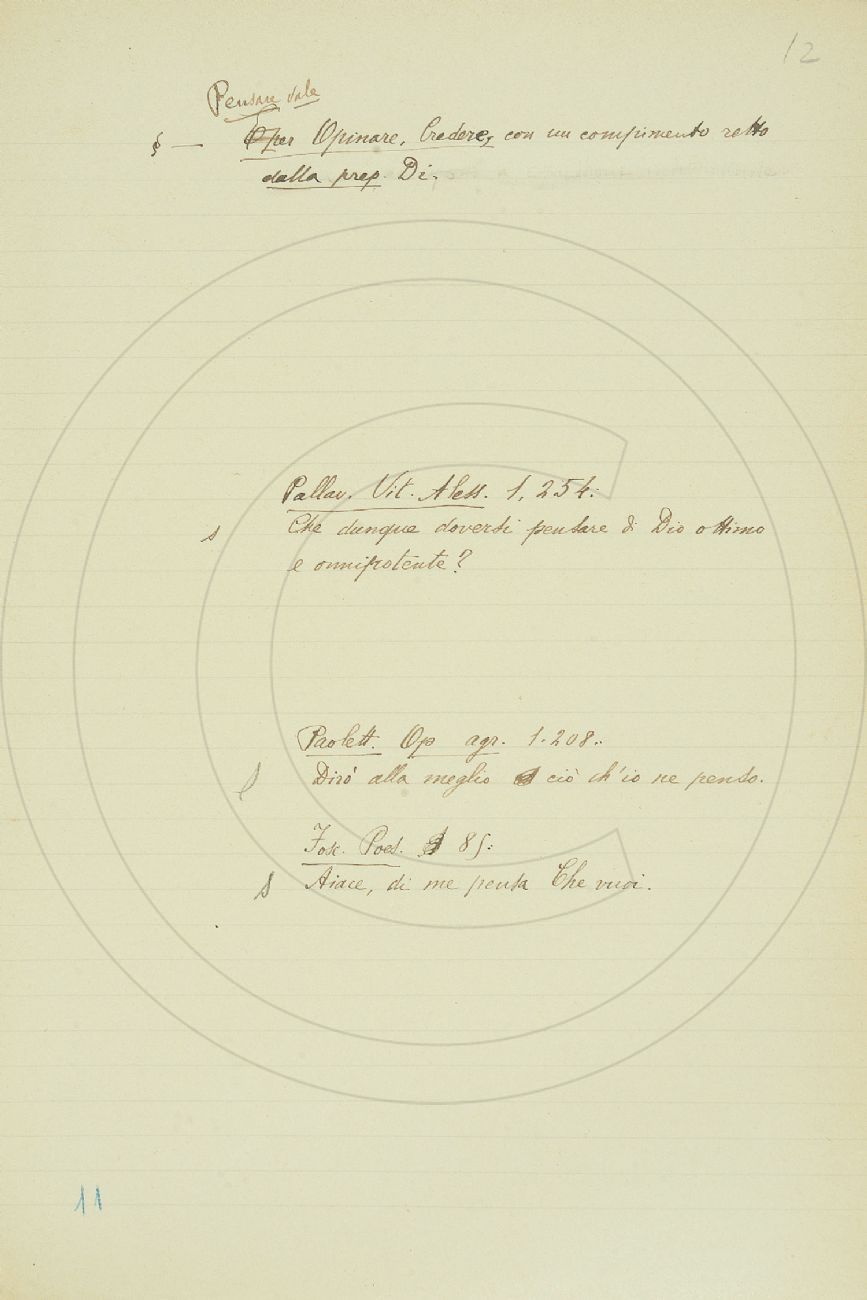 12
Pensare vale
§ — per Opinare, Credere, con un compimento retto
dalla prep. Di.
Pallav. Vit. Aless. 1, 254:
s Che dunque doversi pensare di Dio ottimo
e onnipotente?
Paolett. Op agr. 1. 208:
s Dirò alla meglio ciò ch'io ne penso.
Fosc. Poes. 85:
s Aiace, di me pensa Che vuoi.
11